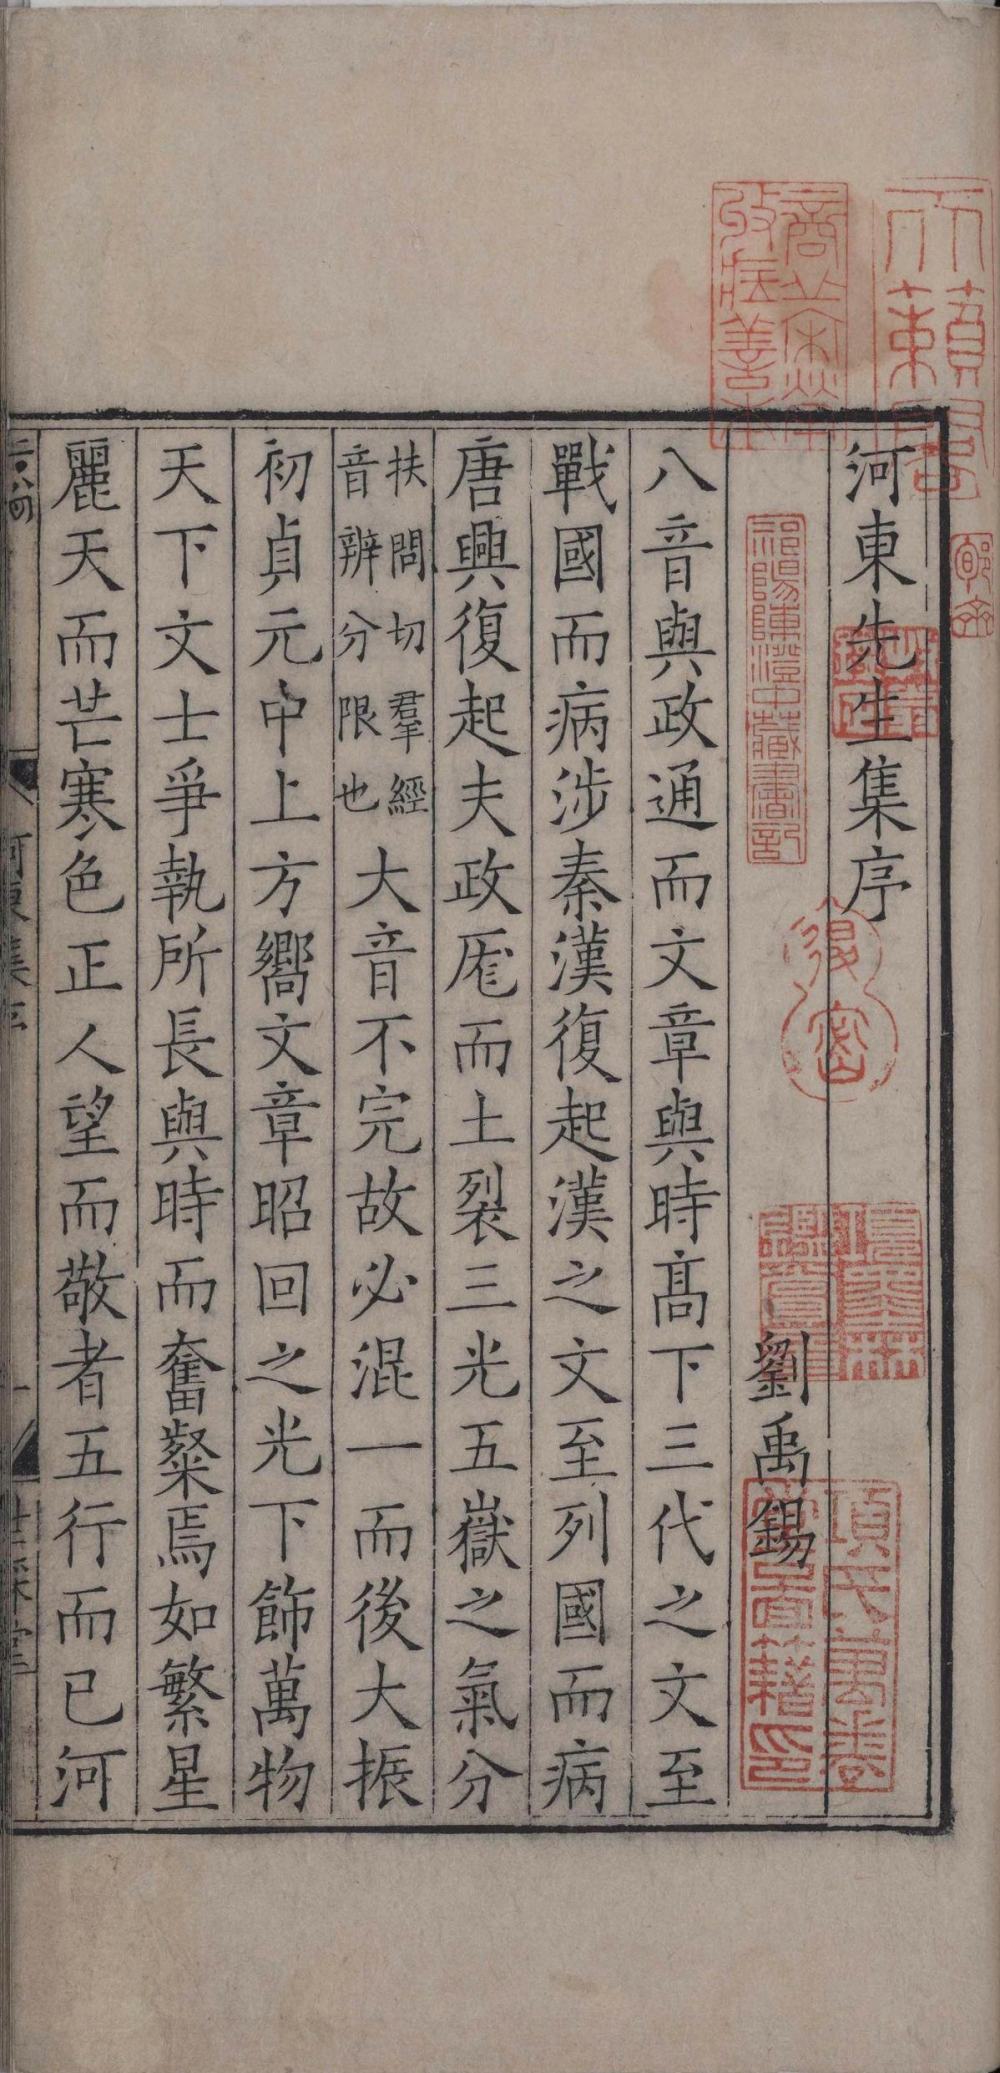 河東先生集序
劉禹錫
八音與政通而文章與時髙下三代之文至
戰國而病涉秦漢復起漢之文至列國而病
唐興復起夫政厖而土裂三光五嶽之氣分
扶問切羣經
音辨分限也
大音不完故必混一而後大振
初貞元中上方嚮文章昭回之光下飾萬物
天下文士爭執所長與時而奮粲焉如繁星
麗天而芒寒色正人望而敬者五行而已河
祁陽陳澄中藏書記
項氏萬卷堂圖籍印